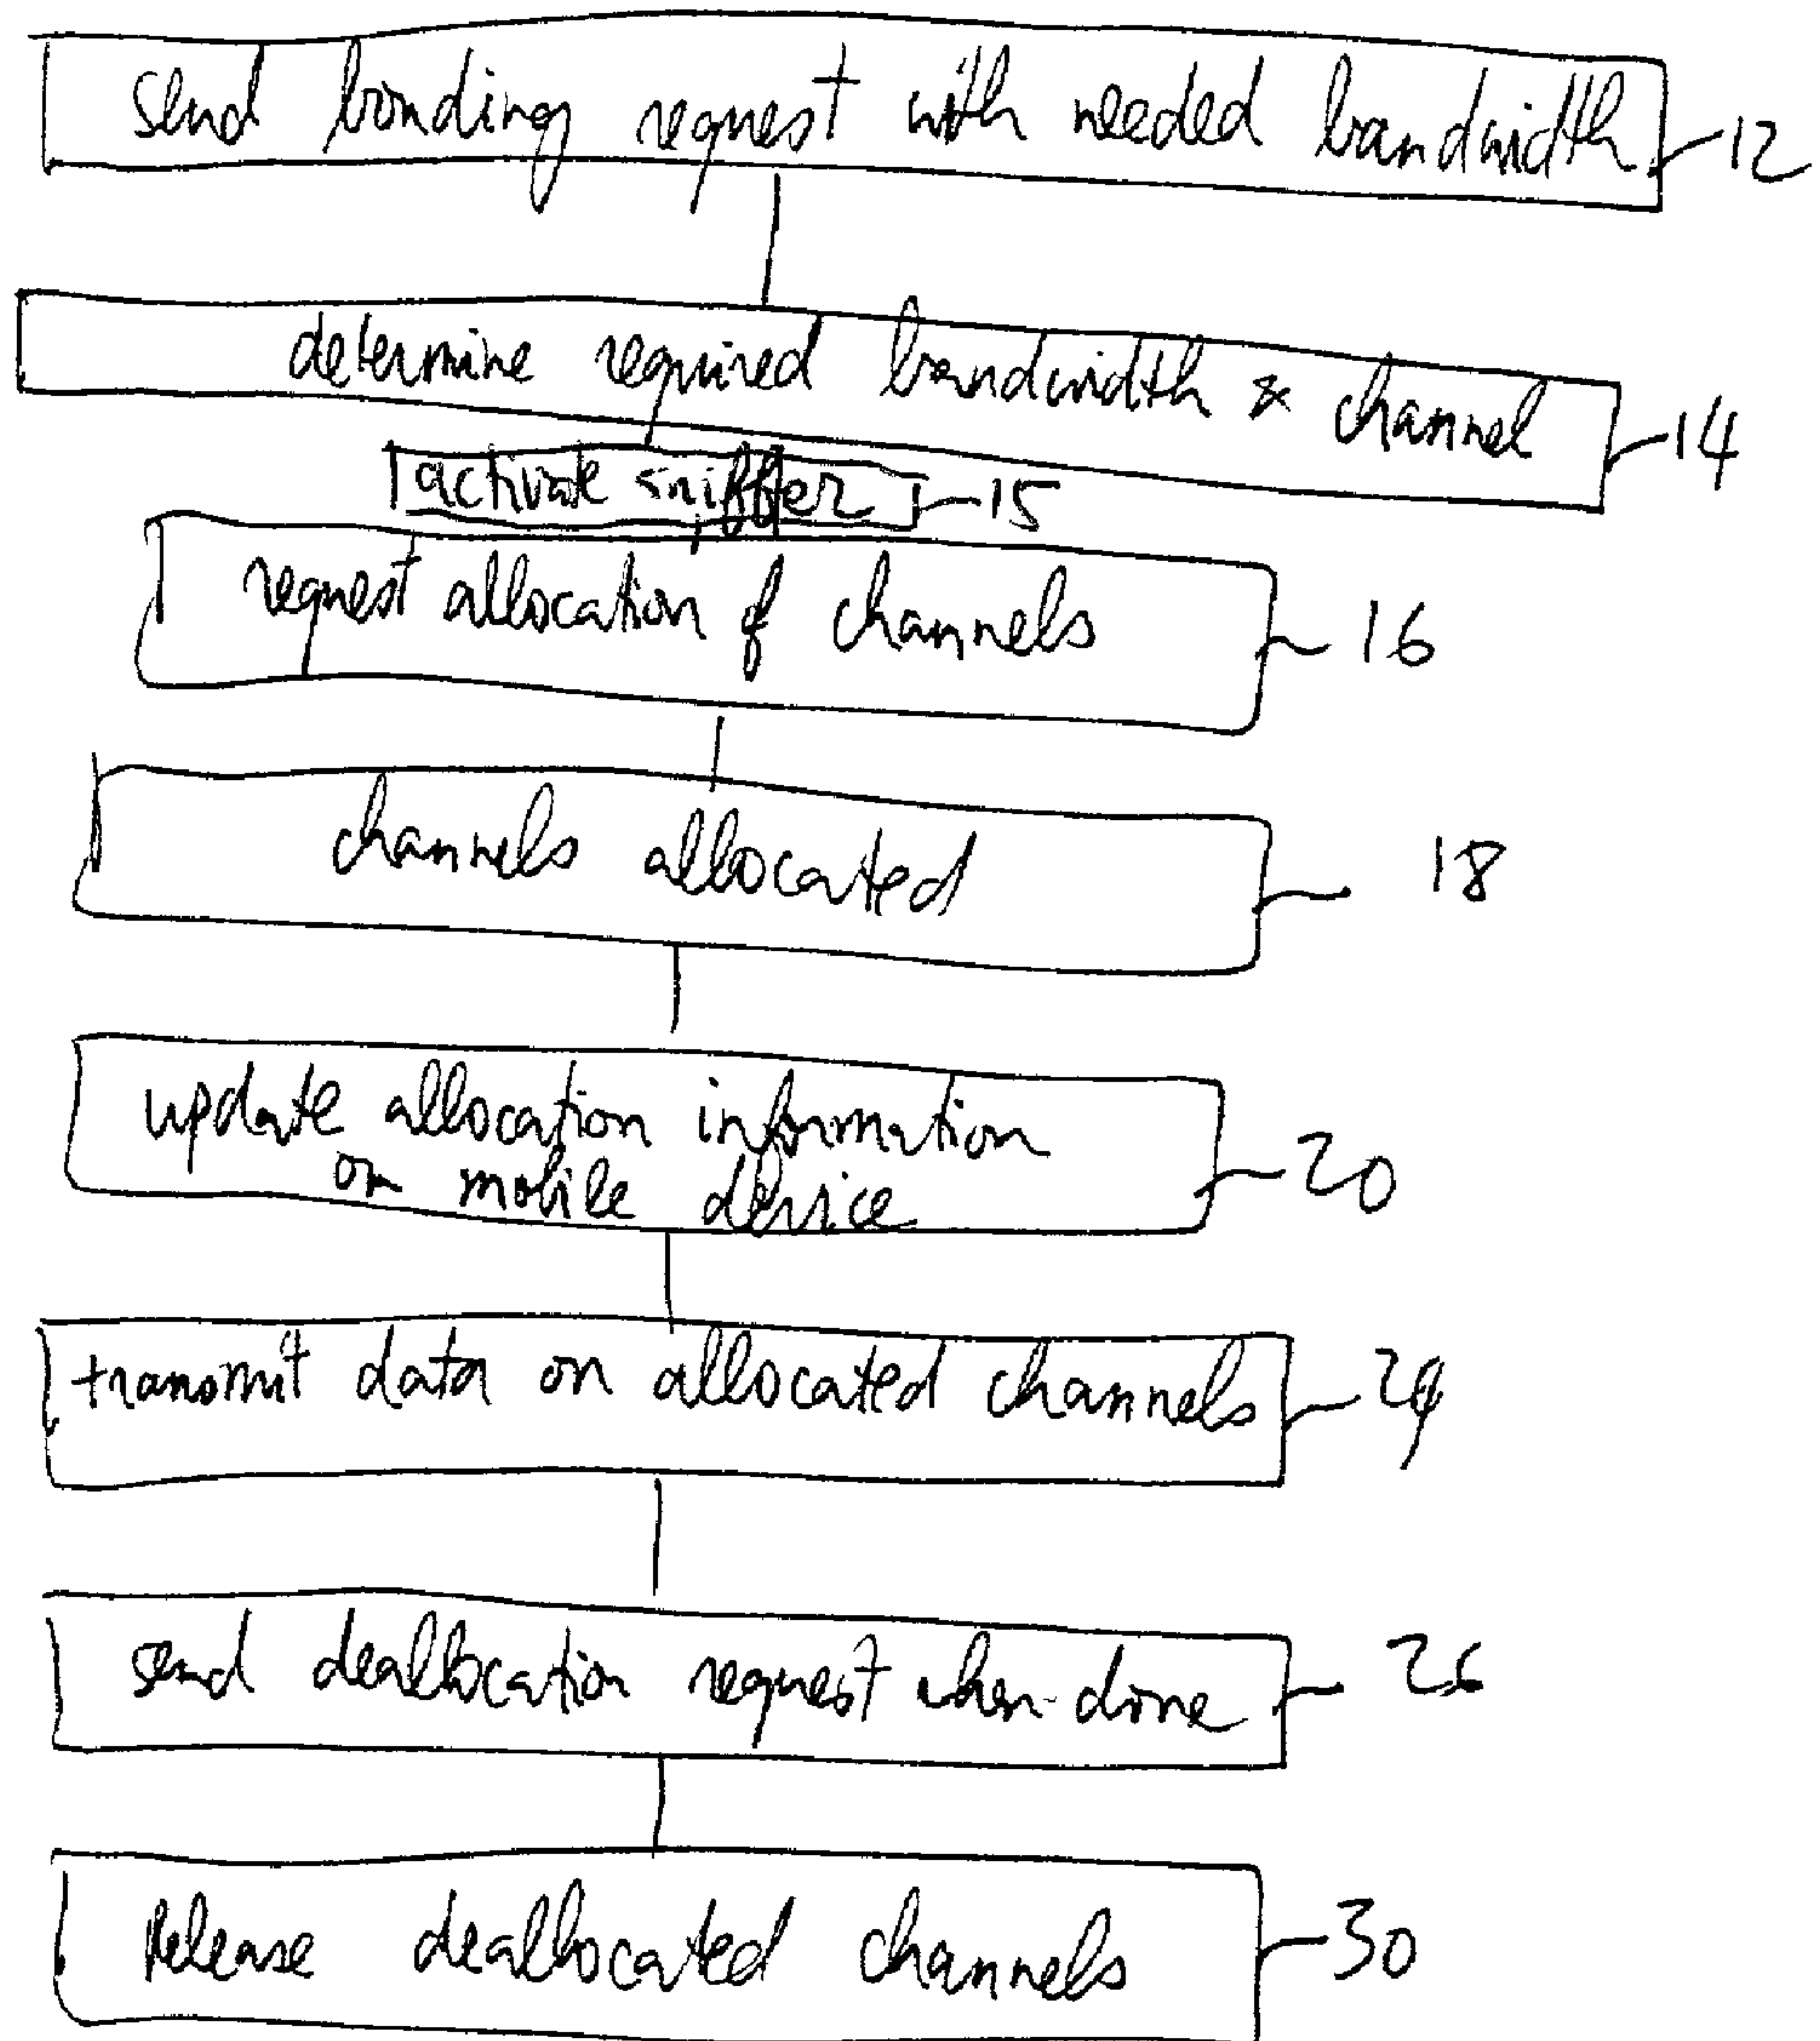 send bonding request with needed bandwidth 12
determine required bandwidth & channel 14
activate sniffer 15
request allocation of channels 16
channels allocated 18
update allocation information 20
on mobile device
transmit data on allocated channels 24
send deallocation request when done 26
Release deallocated channels 30